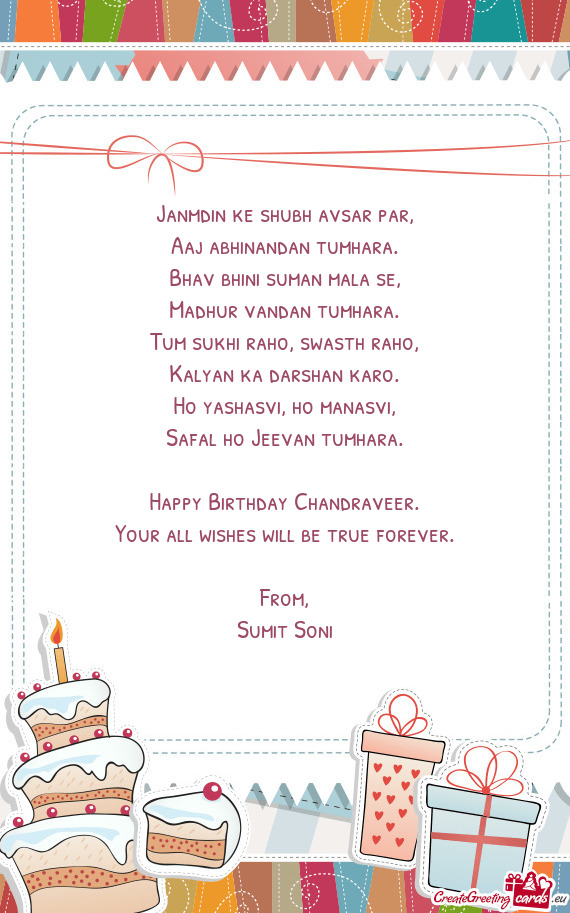 Janmdin ke shubh avsar par,
Aaj abhinandan tumhara.
Bhav bhini suman mala se,
Madhur vandan tumhara.
Tum sukhi raho, swasth raho,
Kalyan ka darshan karo.
Ho yashasvi, ho manasvi,
Safal ho Jeevan tumhara.
Happy Birthday Chandraveer.
Your all wishes will be true forever.
From,
Sumit Soni
CreateGreeting cards .eu